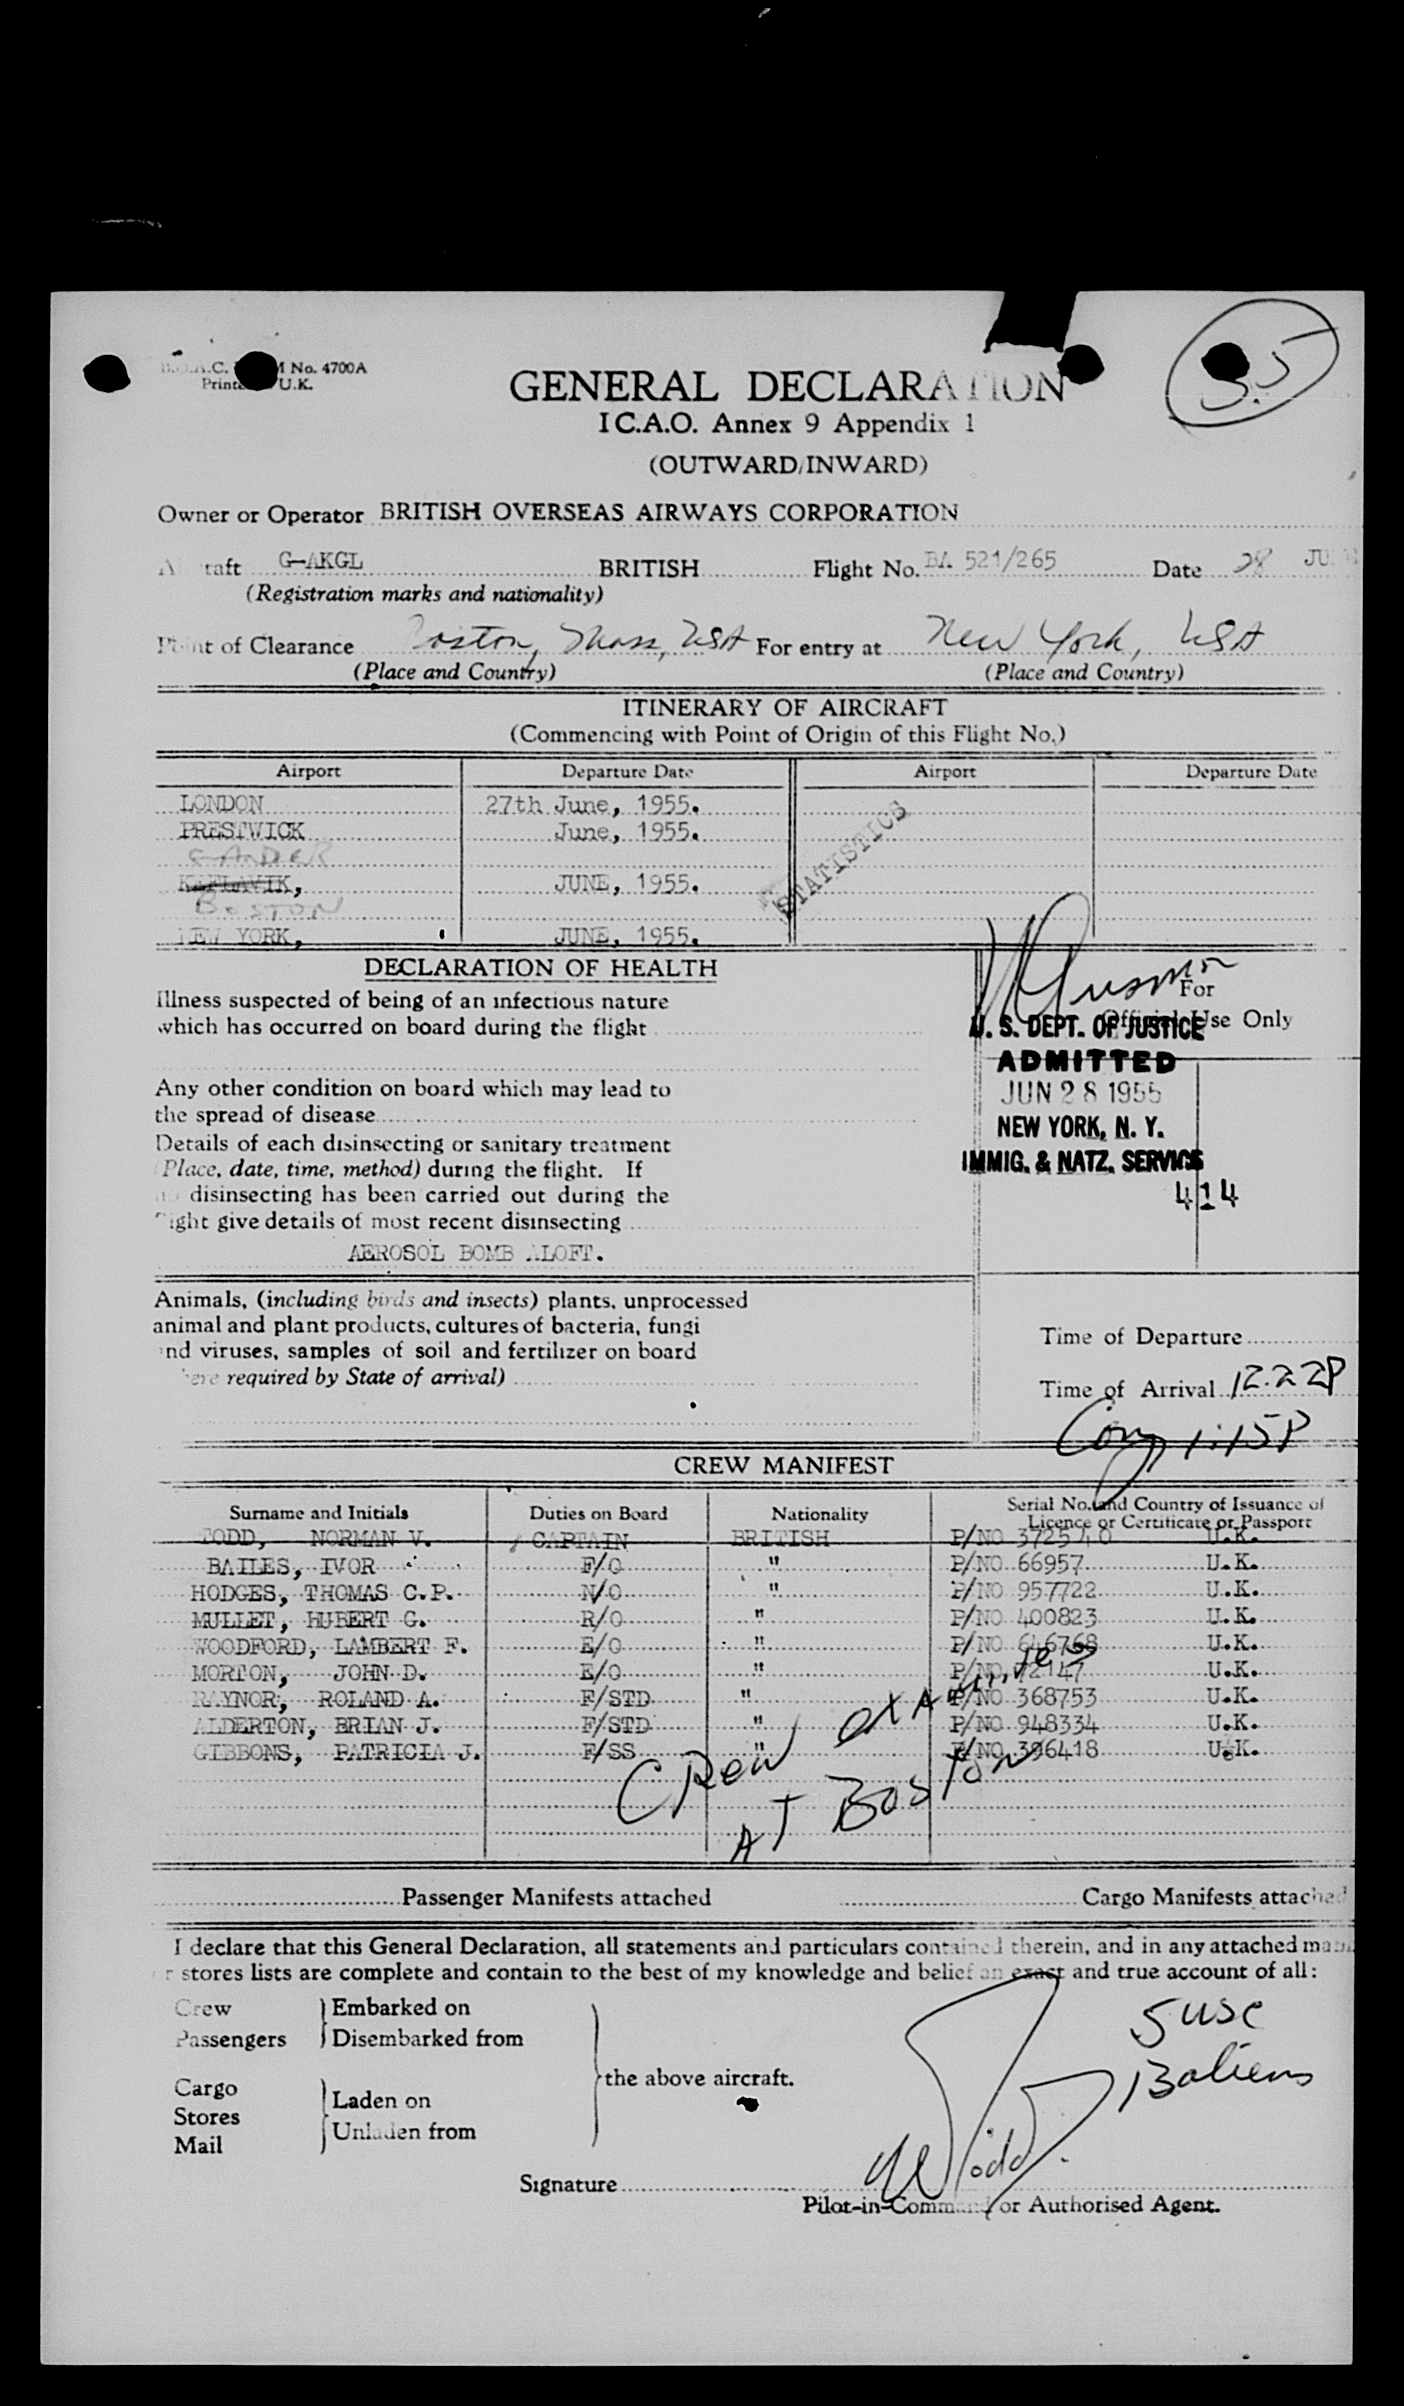 No. 4700A
U.K.
35
GENERAL DECLARATION
I C.A.O. Annex 9 Appendix 1
(OUTWARD/INWARD)
Owner or Operator BRITISH OVERSEAS AIRWAYS CORPORATION
G-AKGL BRITISH Flight No. BA 521/265 Date 28
(Registration marks and nationality)
Point of Clearance Boston, Mass, USA For entry at New York, USA
(Place and Country) (Place and Country)
ITINERARY OF AIRCRAFT
(Commencing with Point of Origin of this Flight No.)
Airport Departure Date Airport Departure Date
LONDON 27th June, 1955.
PRESTWICK June, 1955.
GANDER
KEFLAVIK, JUNE, 1955.
BOSTON
NEW YORK, JUNE, 1955.
STATISTICS
DECLARATION OF HEALTH
Illness suspected of being of an infectious nature
which has occurred on board during the flight
For
Official Use Only
U. S. DEPT. OF JUSTICE
ADMITTED
JUN 28 1955
NEW YORK, N. Y.
IMMIG. & NATZ. SERVICE
414
Any other condition on board which may lead to
the spread of disease
Details of each disinsecting or sanitary treatment
(Place, date, time, method) during the flight. If
no disinsecting has been carried out during the
flight give details of most recent disinsecting
AEROSOL BOMB ALOFT.
Animals, (including birds and insects) plants, unprocessed
animal and plant products, cultures of bacteria, fungi
and viruses, samples of soil and fertilizer on board
(where required by State of arrival)
Time of Departure
Time of Arrival 12.22P
1:15P
CREW MANIFEST
Surname and Initials Duties on Board Nationality Serial No. and Country of Issuance of
Licence or Certificate or Passport
TODD, NORMAN V. CAPTAIN BRITISH P/NO 372540 U.K.
BAILES, IVOR F/O " P/NO 66957 U.K.
HODGES, THOMAS C.P. N/O " P/NO 957722 U.K.
MULLET, HUBERT G. R/O " P/NO 400823 U.K.
WOODFORD, LAMBERT F. E/O " P/NO 646768 U.K.
MORTON, JOHN D. E/O " P/NO 72147 U.K.
RAYNOR, ROLAND A. F/STD " P/NO 368753 U.K.
ALDERTON, BRIAN J. F/STD " P/NO 948334 U.K.
GIBBONS, PATRICIA J. F/SS " P/NO 396418 U.K.
CREW EXAMINED
AT BOSTON
Passenger Manifests attached Cargo Manifests attached
I declare that this General Declaration, all statements and particulars contained therein, and in any attached
or stores lists are complete and contain to the best of my knowledge and belief an exact and true account of all:
Crew Embarked on
Passengers Disembarked from
the above aircraft.
Cargo
Stores Laden on
Mail Unladen from
5 USC
13 aliens
Signature
Pilot-in-Command or Authorised Agent.